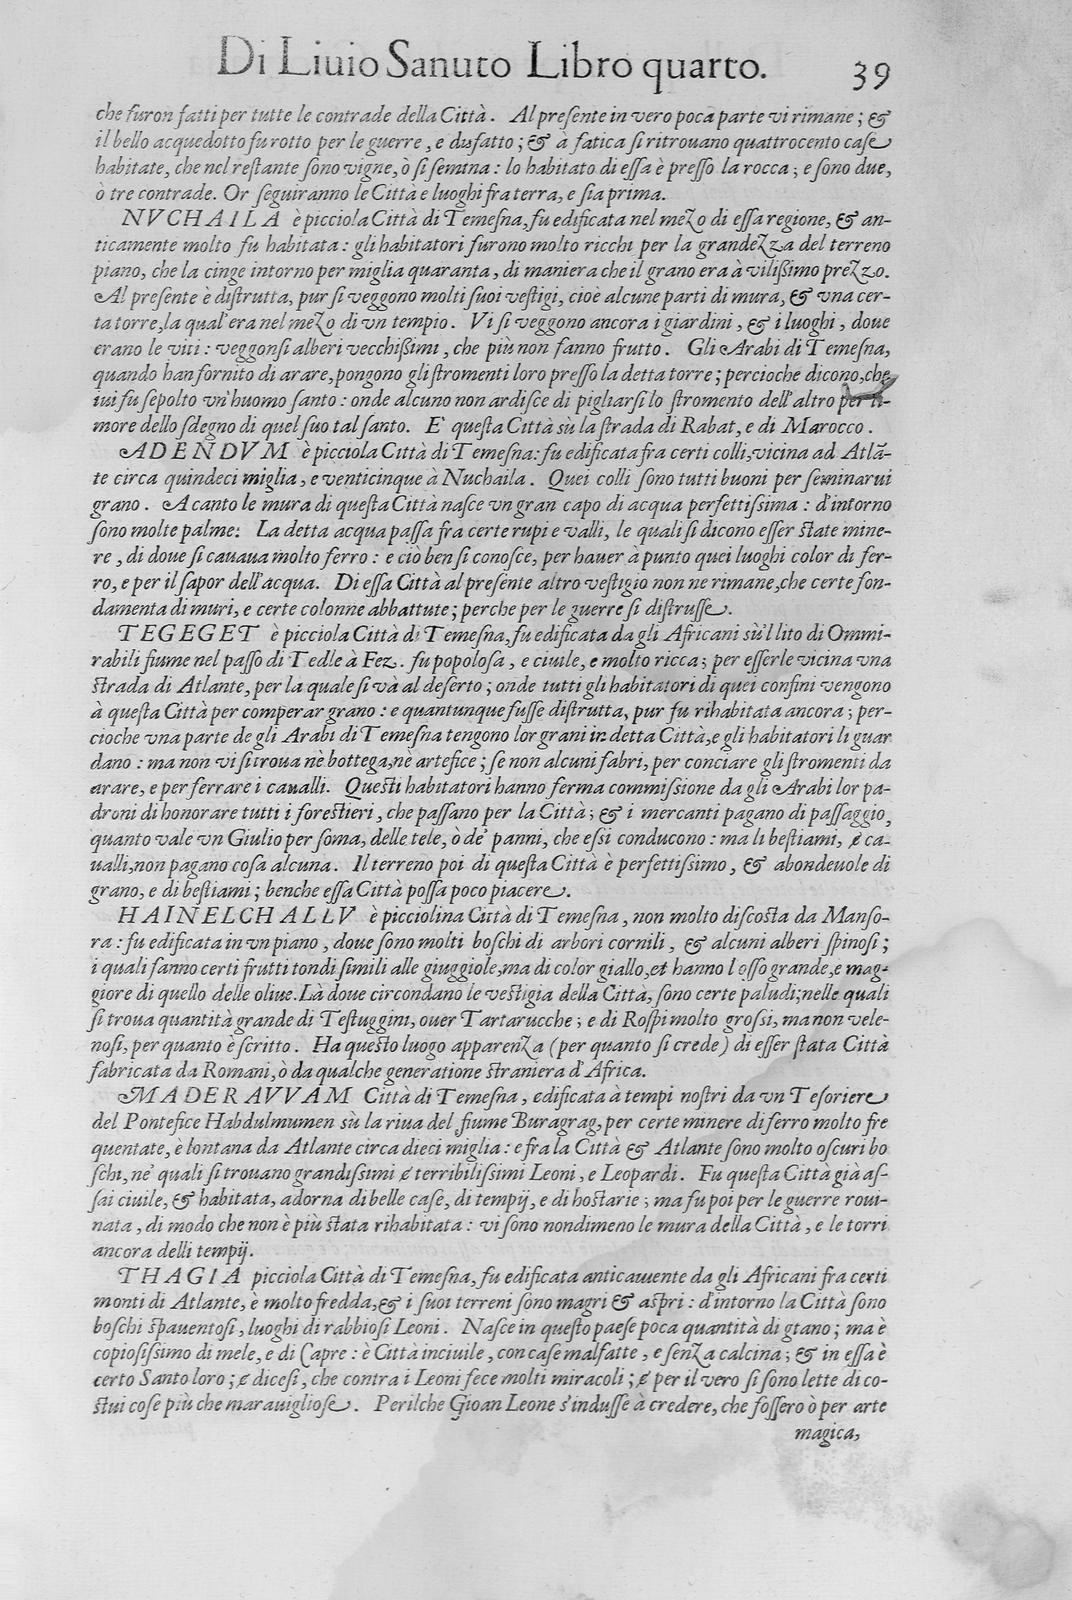 Di Liuio Sanuto Libro quarto. 39
che furon fatti per tutte le contrade della Città. Al presente in vero poca parte vi rimane; &
il bello acquedotto fu rotto per le guerre, e dusfatto; & à fatica si ritrouano quattrocento case
habitate, che nel restante sono vigne, ò si semina: lo habitato di essa è presso la rocca; e sono due,
ò tre contrade. Or seguiranno le Città e luoghi fra terra, e sia prima.
NVCHAILA è picciola Città di Temesna, fu edificata nel mezo di essa regione, & an-
ticamente molto fu habitata: gli habitatori furono molto ricchi per la grandezza del terreno
piano, che la cinge intorno per miglia quaranta, di maniera che il grano era à vilissimo prezzo.
Al presente è distrutta, pur si veggono molti suoi vestigi, cioè alcune parti di mura, & vna cer-
ta torre, la qual'era nel mezo di vn tempio. Vi si veggono ancora i giardini, & i luoghi, doue
erano le viti: veggonsi alberi vecchissimi, che più non fanno frutto. Gli Arabi di Temesna,
quando han fornito di arare, pongono gli stromenti loro presso la detta torre; percioche dicono, che
iui fu sepolto vn'huomo santo: onde alcuno non ardisce di pigliarsi lo stromento dell'altro per ti-
more dello sdegno di quel suo tal santo. E' questa Città sù la strada di Rabat, e di Marocco.
ADENDVM è picciola Città di Temesna: fu edificata fra certi colli, vicina ad Atlā-
te circa quindeci miglia, e venticinque à Nuchaila. Quei colli sono tutti buoni per seminarui
grano. A canto le mura di questa Città nasce vn gran capo di acqua perfettissima: d'intorno
sono molte palme: La detta acqua passa fra certe rupi e valli, le quali si dicono esser state mine-
re, di doue si cauaua molto ferro: e ciò ben si conosce, per hauer à punto quei luoghi color di fer-
ro, e per il sapor dell'acqua. Di essa Città al presente altro vestigio non ne rimane, che certe fon-
damenta di muri, e certe colonne abbattute; perche per le guerre si distrusse.
TEGEGET è picciola Città di Temesna, fu edificata da gli Africani sù'l lito di Ommi-
rabili fiume nel passo di Tedle à Fez. fu popolosa, e ciuile, e molto ricca; per esserle vicina vna
strada di Atlante, per la quale si và al deserto; onde tutti gli habitatori di quei confini vengono
à questa Città per comperar grano: e quantunque fusse distrutta, pur fu rihabitata ancora; per-
cioche vna parte de gli Arabi di Temesna tengono lor grani in detta Città, e gli habitatori li guar
dano: ma non vi si troua nè bottega, nè artefice; se non alcuni fabri, per conciare gli stromenti da
arare, e per ferrare i caualli. Questi habitatori hanno ferma commissione da gli Arabi lor pa-
droni di honorare tutti i forestieri, che passano per la Città; & i mercanti pagano di passaggio,
quanto vale vn Giulio per soma, delle tele, ò de' panni, che essi conducono: ma li bestiami, e ca-
ualli, non pagano cosa alcuna. Il terreno poi di questa Città è perfettissimo, & abondeuole di
grano, e di bestiami; benche essa Città possa poco piacere.
HAINELCHALLV è picciolina Città di Temesna, non molto discosta da Manso-
ra: fu edificata in vn piano, doue sono molti boschi di arbori cornili, & alcuni alberi spinosi;
i quali fanno certi frutti tondi simili alle giuggiole, ma di color giallo, et hanno l'osso grande, e mag-
giore di quello delle oliue. Là doue circondano le vestigia della Città, sono certe paludi; nelle quali
si troua quantità grande di Testuggini, ouer Tartarucche; e di Rospi molto grossi, ma non vele-
nosi, per quanto è scritto. Ha questo luogo apparenza (per quanto si crede) di esser stata Città
fabricata da Romani, ò da qualche generatione straniera d'Africa.
MADERAVVAM Città di Temesna, edificata à tempi nostri da vn Tesoriere
del Pontefice Habdulmumen sù la riua del fiume Buragrag, per certe minere di ferro molto fre
quentate, è lontana da Atlante circa dieci miglia: e fra la Città & Atlante sono molto oscuri bo
schi, ne' quali si trouano grandissimi e terribilissimi Leoni, e Leopardi. Fu questa Città già as-
sai ciuile, & habitata, adorna di belle case, di tempij, e di hostarie; ma fu poi per le guerre roui-
nata, di modo che non è più stata rihabitata: vi sono nondimeno le mura della Città, e le torri
ancora delli tempij.
THAGIA picciola Città di Temesna, fu edificata anticamente da gli Africani fra certi
monti di Atlante, è molto fredda, & i suoi terreni sono magri & aspri: d'intorno la Città sono
boschi spauentosi, luoghi di rabbiosi Leoni. Nasce in questo paese poca quantità di gtano; ma è
copiosissimo di mele, e di Capre: è Città inciuile, con case malfatte, e senza calcina; & in essa è
certo Santo loro; e dicesi, che contra i Leoni fece molti miracoli; e per il vero si sono lette di co-
stui cose più che marauigliose. Perilche Gioan Leone s'indusse à credere, che fossero ò per arte
magica,